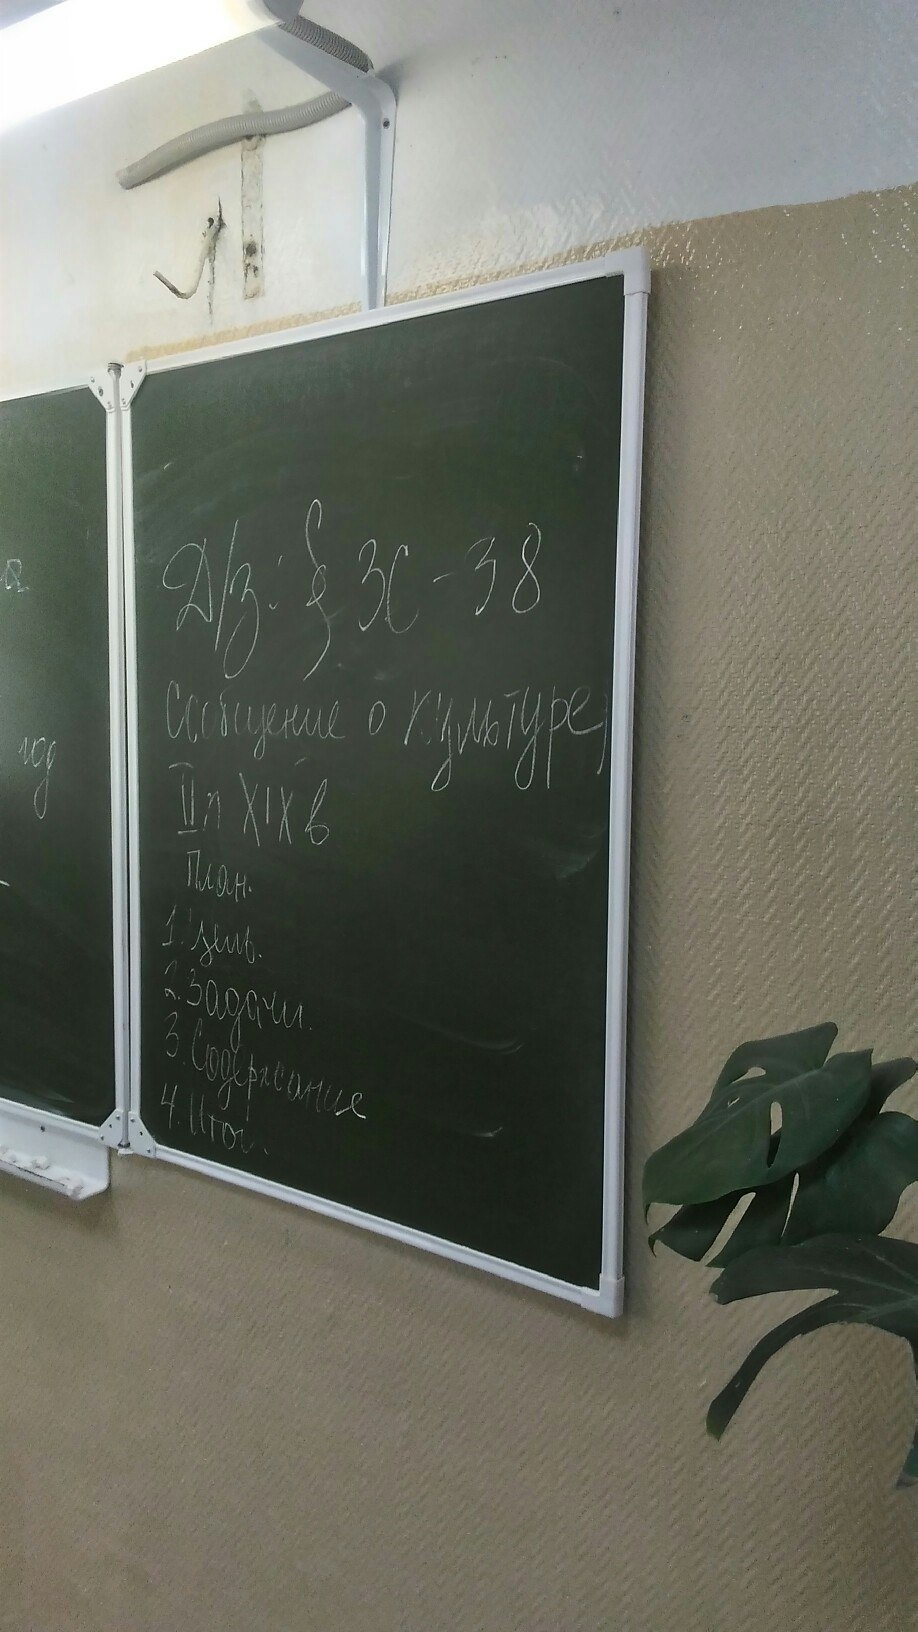 год
Д/з: § 36-38
Сообщение о культуре
II п XIX в
План.
1. Цель.
2. Задачи.
3. Содержание
4. Итог.